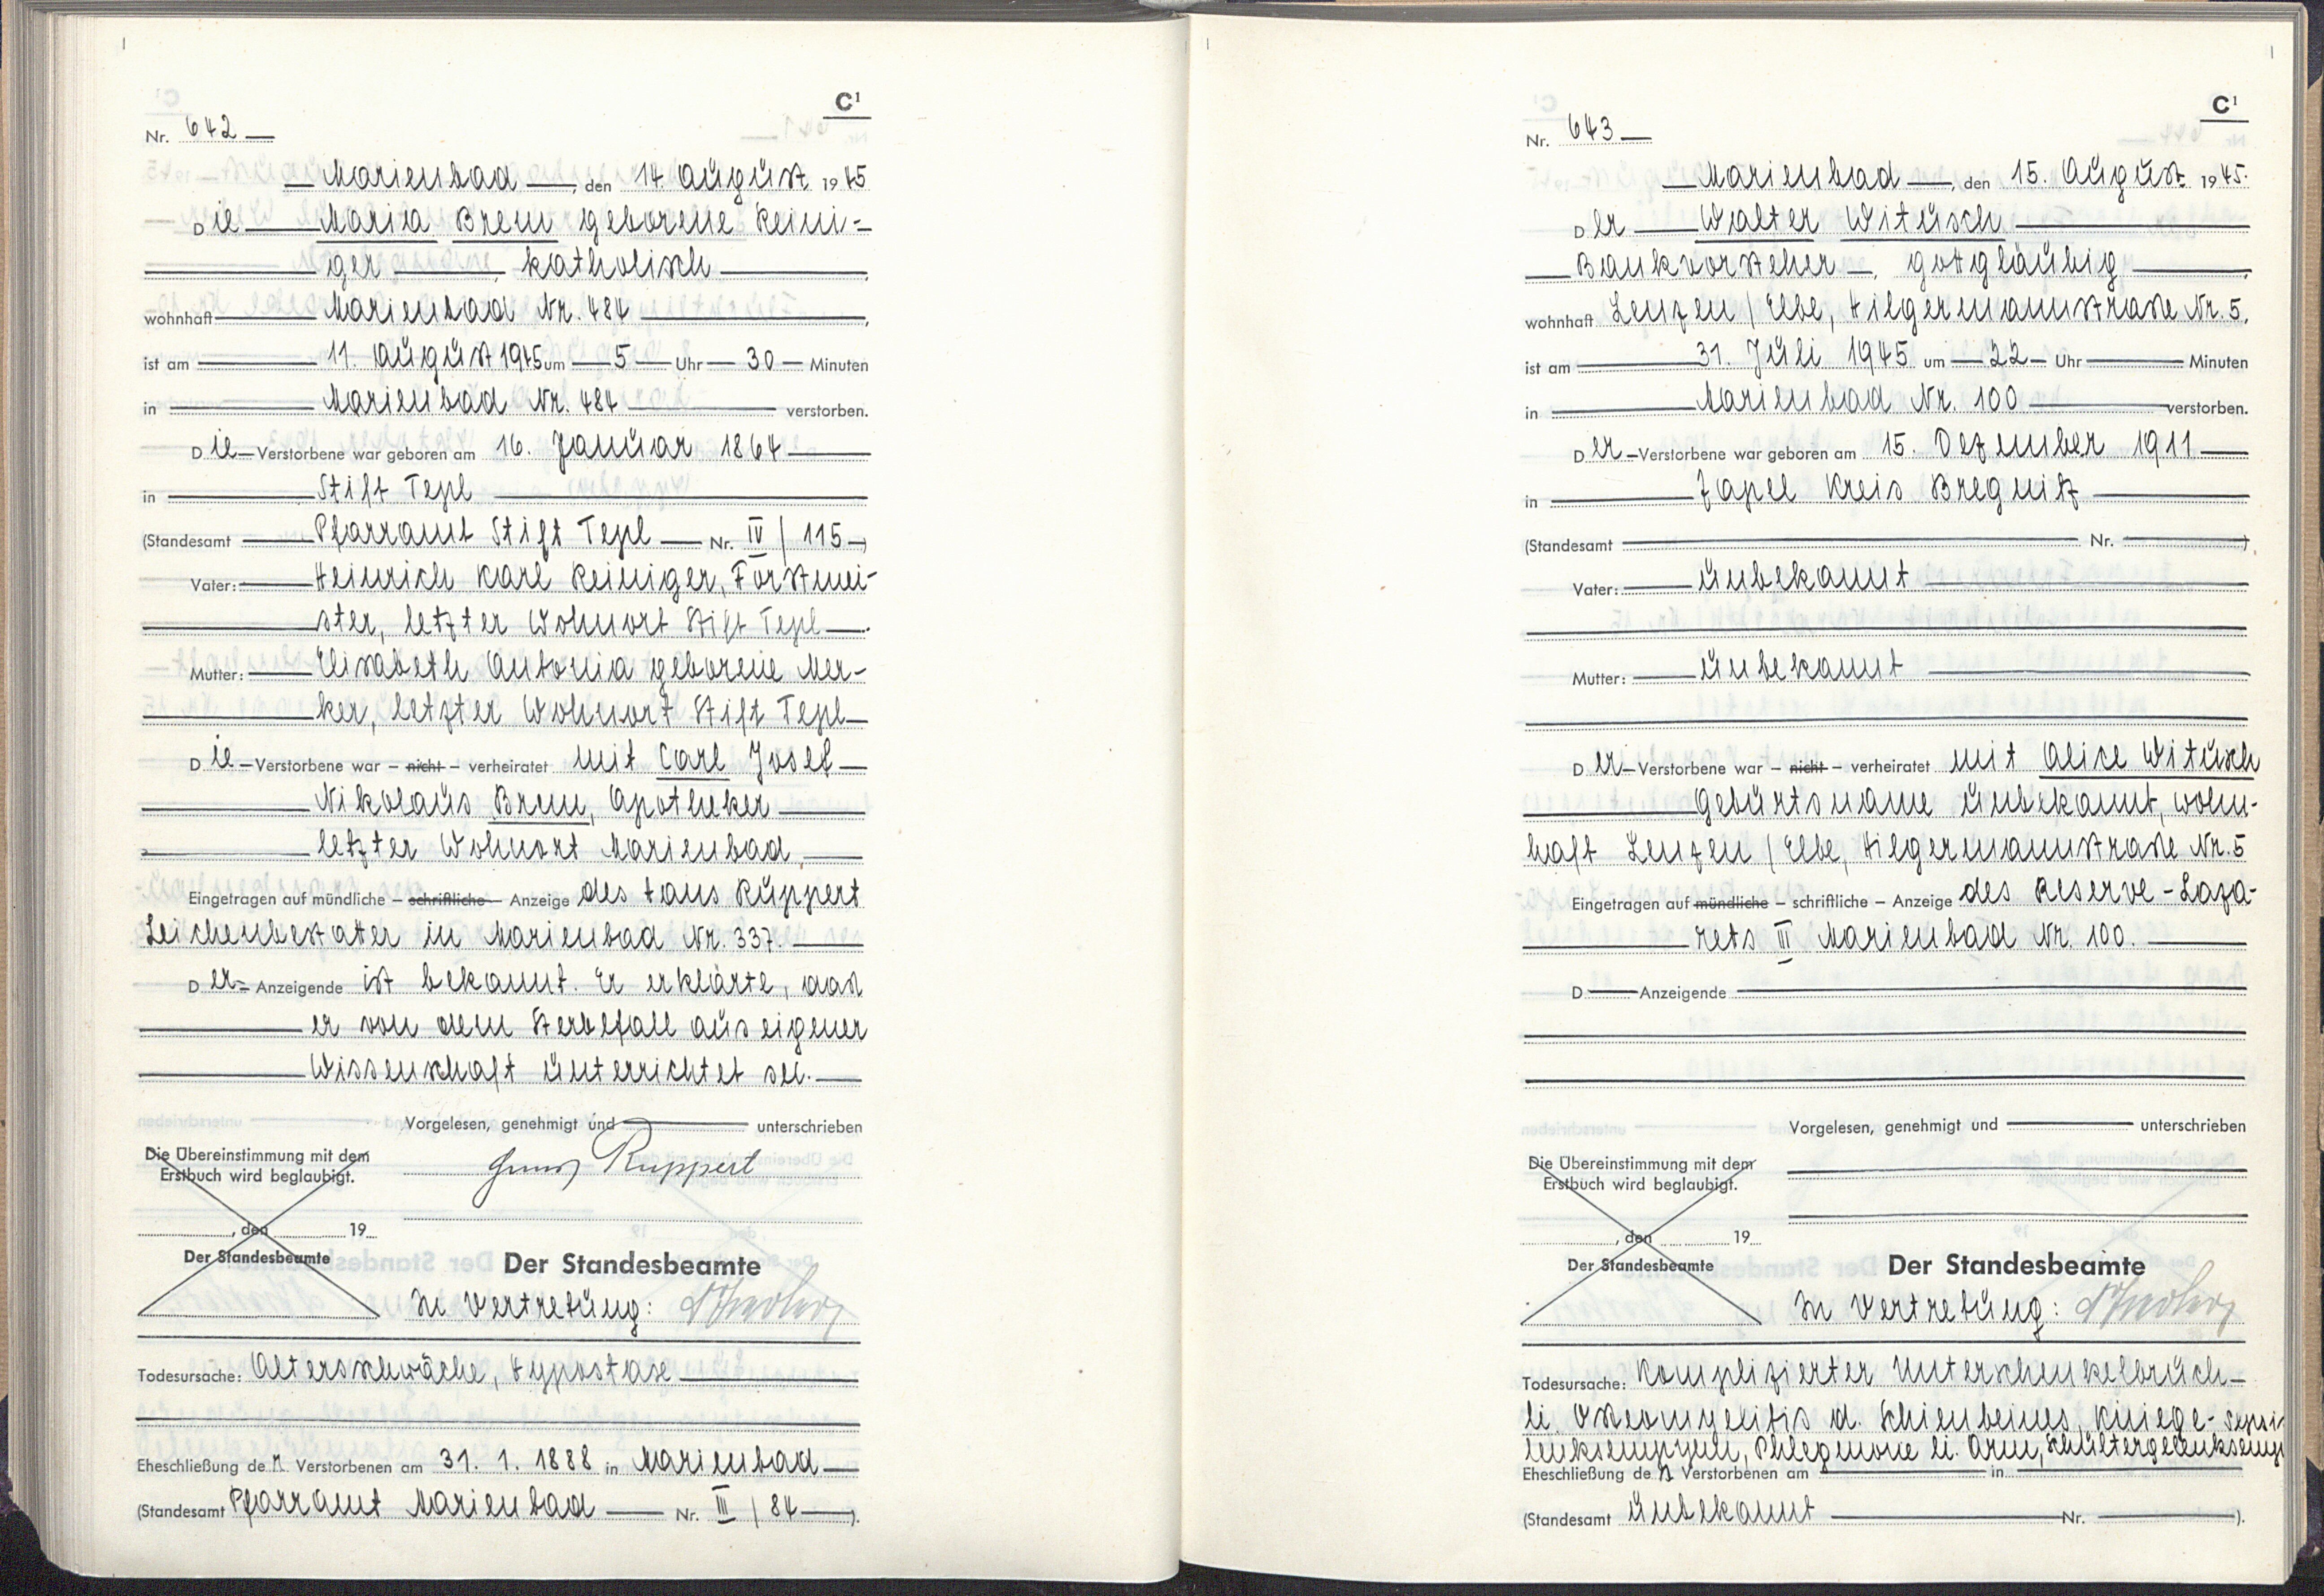 C¹
Nr. 642
Marienbad, den 14. August 1945
Die Maria Brem geborene Reini-
ger, katholisch,
wohnhaft Marienbad Nr. 484,
ist am 11. August 1945 um 5 Uhr 30 Minuten
in Marienbad Nr. 484 verstorben.
Die Verstorbene war geboren am 16. Januar 1864
in Stift Tepl
(Standesamt Pfarramt Stift Tepl Nr. IV / 115)
Vater: Heinrich Karl Reiniger, Forstmei-
ster, letzter Wohnort Stift Tepl.
Mutter: Elisabeth Antonia geborene Mer-
ker, letzter Wohnort Stift Tepl
Die Verstorbene war – nicht – verheiratet mit Carl Josef
Nikolaus Brem, Apotheker
letzter Wohnort Marienbad.
Eingetragen auf mündliche – schriftliche – Anzeige des Hans Ruppert
Leichenbestatter in Marienbad Nr. 337.
Der Anzeigende ist bekannt. Er erklärte, daß
er von dem Sterbefall aus eigener
Wissenschaft unterrichtet sei.
Vorgelesen, genehmigt und unterschrieben
Die Übereinstimmung mit dem
Erstbuch wird beglaubigt.
Hans Ruppert
, den 19
Der Standesbeamte
Der Standesbeamte
In Vertretung:
Todesursache: Altersschwäche, Hypostase
Eheschließung der Verstorbenen am 31. 1. 1888 in Marienbad
(Standesamt Pfarramt Marienbad Nr. III / 84).
C¹
Nr. 643
Marienbad, den 15. August 1945.
Der Walter Witusch
Bankvorsteher, gottgläubig,
wohnhaft Lenzen / Elbe, Hilgermannstraße Nr. 5,
ist am 31. Juli 1945 um 22 Uhr Minuten
in Marienbad Nr. 100 verstorben.
Der Verstorbene war geboren am 15. Dezember 1911
in Zapel Kreis Bregnitz
(Standesamt Nr. )
Vater: unbekannt
Mutter: unbekannt
Der Verstorbene war – nicht – verheiratet mit Alice Witusch
Geburtsname unbekannt, wohn-
haft Lenzen / Elbe, Hilgermannstraße Nr. 5
Eingetragen auf mündliche – schriftliche – Anzeige des Reserve-Laza-
rets III Marienbad Nr. 100.
D Anzeigende
Vorgelesen, genehmigt und unterschrieben
Die Übereinstimmung mit dem
Erstbuch wird beglaubigt.
, den 19
Der Standesbeamte
Der Standesbeamte
In Vertretung:
Todesursache: Komplizierter Unterschenkelbruch
li. Osteomyelitis d. Schienbeines, Kniege- Sepsis
lenksempyem, Phlegmone li. Arm, Schultergelenksemp.
Eheschließung des Verstorbenen am in
(Standesamt unbekannt Nr. ).